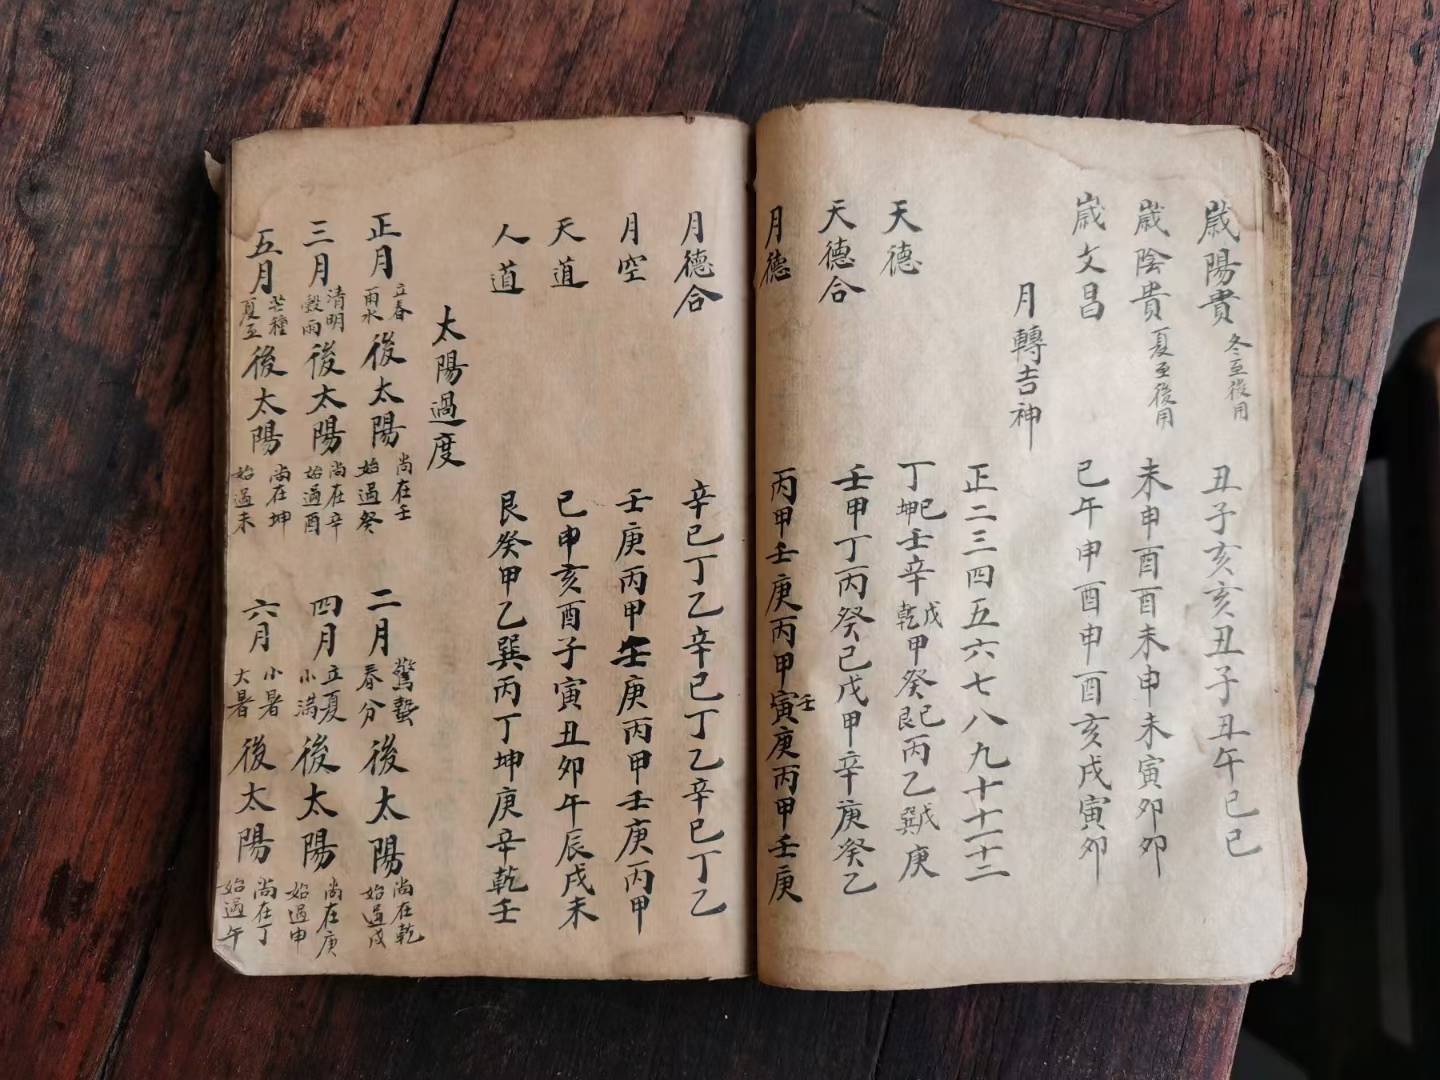 歳陽貴 冬至後用 丑子亥亥丑子丑午巳巳
歳陰貴 夏至後用 未申酉酉未申未寅卯卯
歳文昌 巳午申酉申酉亥戌寅卯
月轉吉神
正二三四五六七八九十十一十二
天德 丁坤巳壬辛乾戊甲癸艮巳丙乙巽戌庚
天德合 壬甲丁丙癸己戊甲辛庚癸乙
月德 丙甲壬庚丙甲寅壬庚丙甲壬庚
月德合 辛巳丁乙辛巳丁乙辛巳丁乙
月空 壬庚丙甲壬庚丙甲壬庚丙甲
天道 巳申亥酉子寅丑卯午辰戌未
人道 艮癸甲乙巽丙丁坤庚辛乾壬
太陽過度
正月 立春 雨水 後太陽 尚在壬 始過癸 二月 驚蟄 春分 後太陽 尚在乾 始過戌
三月 清明 穀雨 後太陽 尚在辛 始過酉 四月 立夏 小滿 後太陽 尚在庚 始過申
五月 芒種 夏至 後太陽 尚在坤 始過未 六月 小暑 大暑 後太陽 尚在丁 始過午